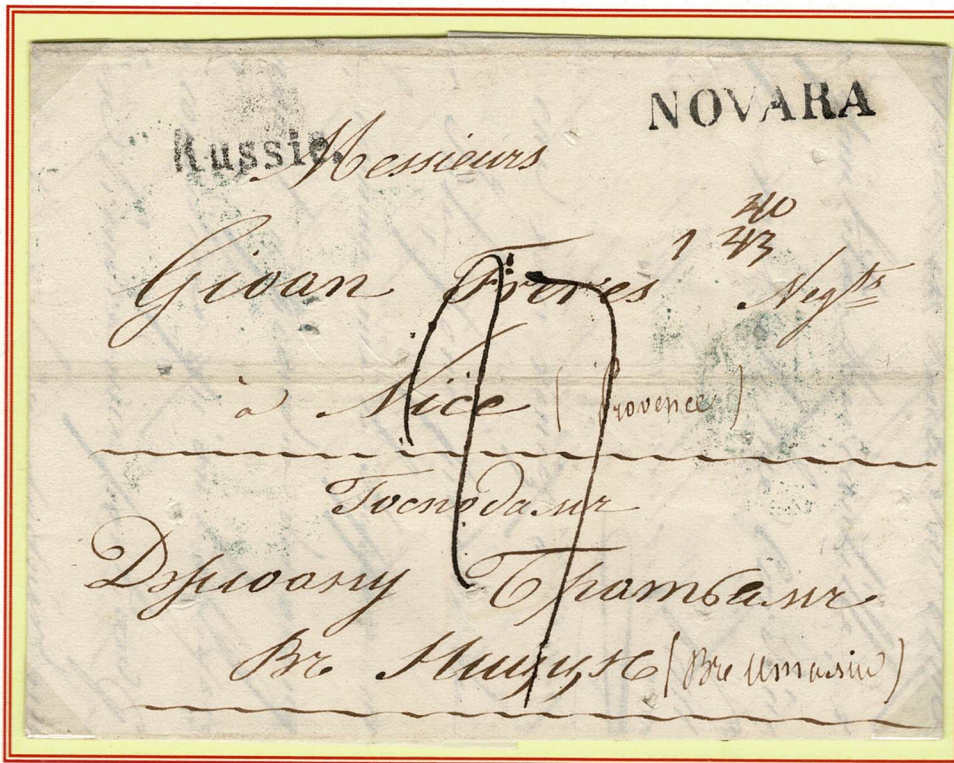 NOVARA
Russie.
Messieurs
40
1 43
Gioan Freres Negts
à Nice (Provence)
Господамъ
Джиоану Братьямъ
Въ Ниццѣ (Въ Италiю)